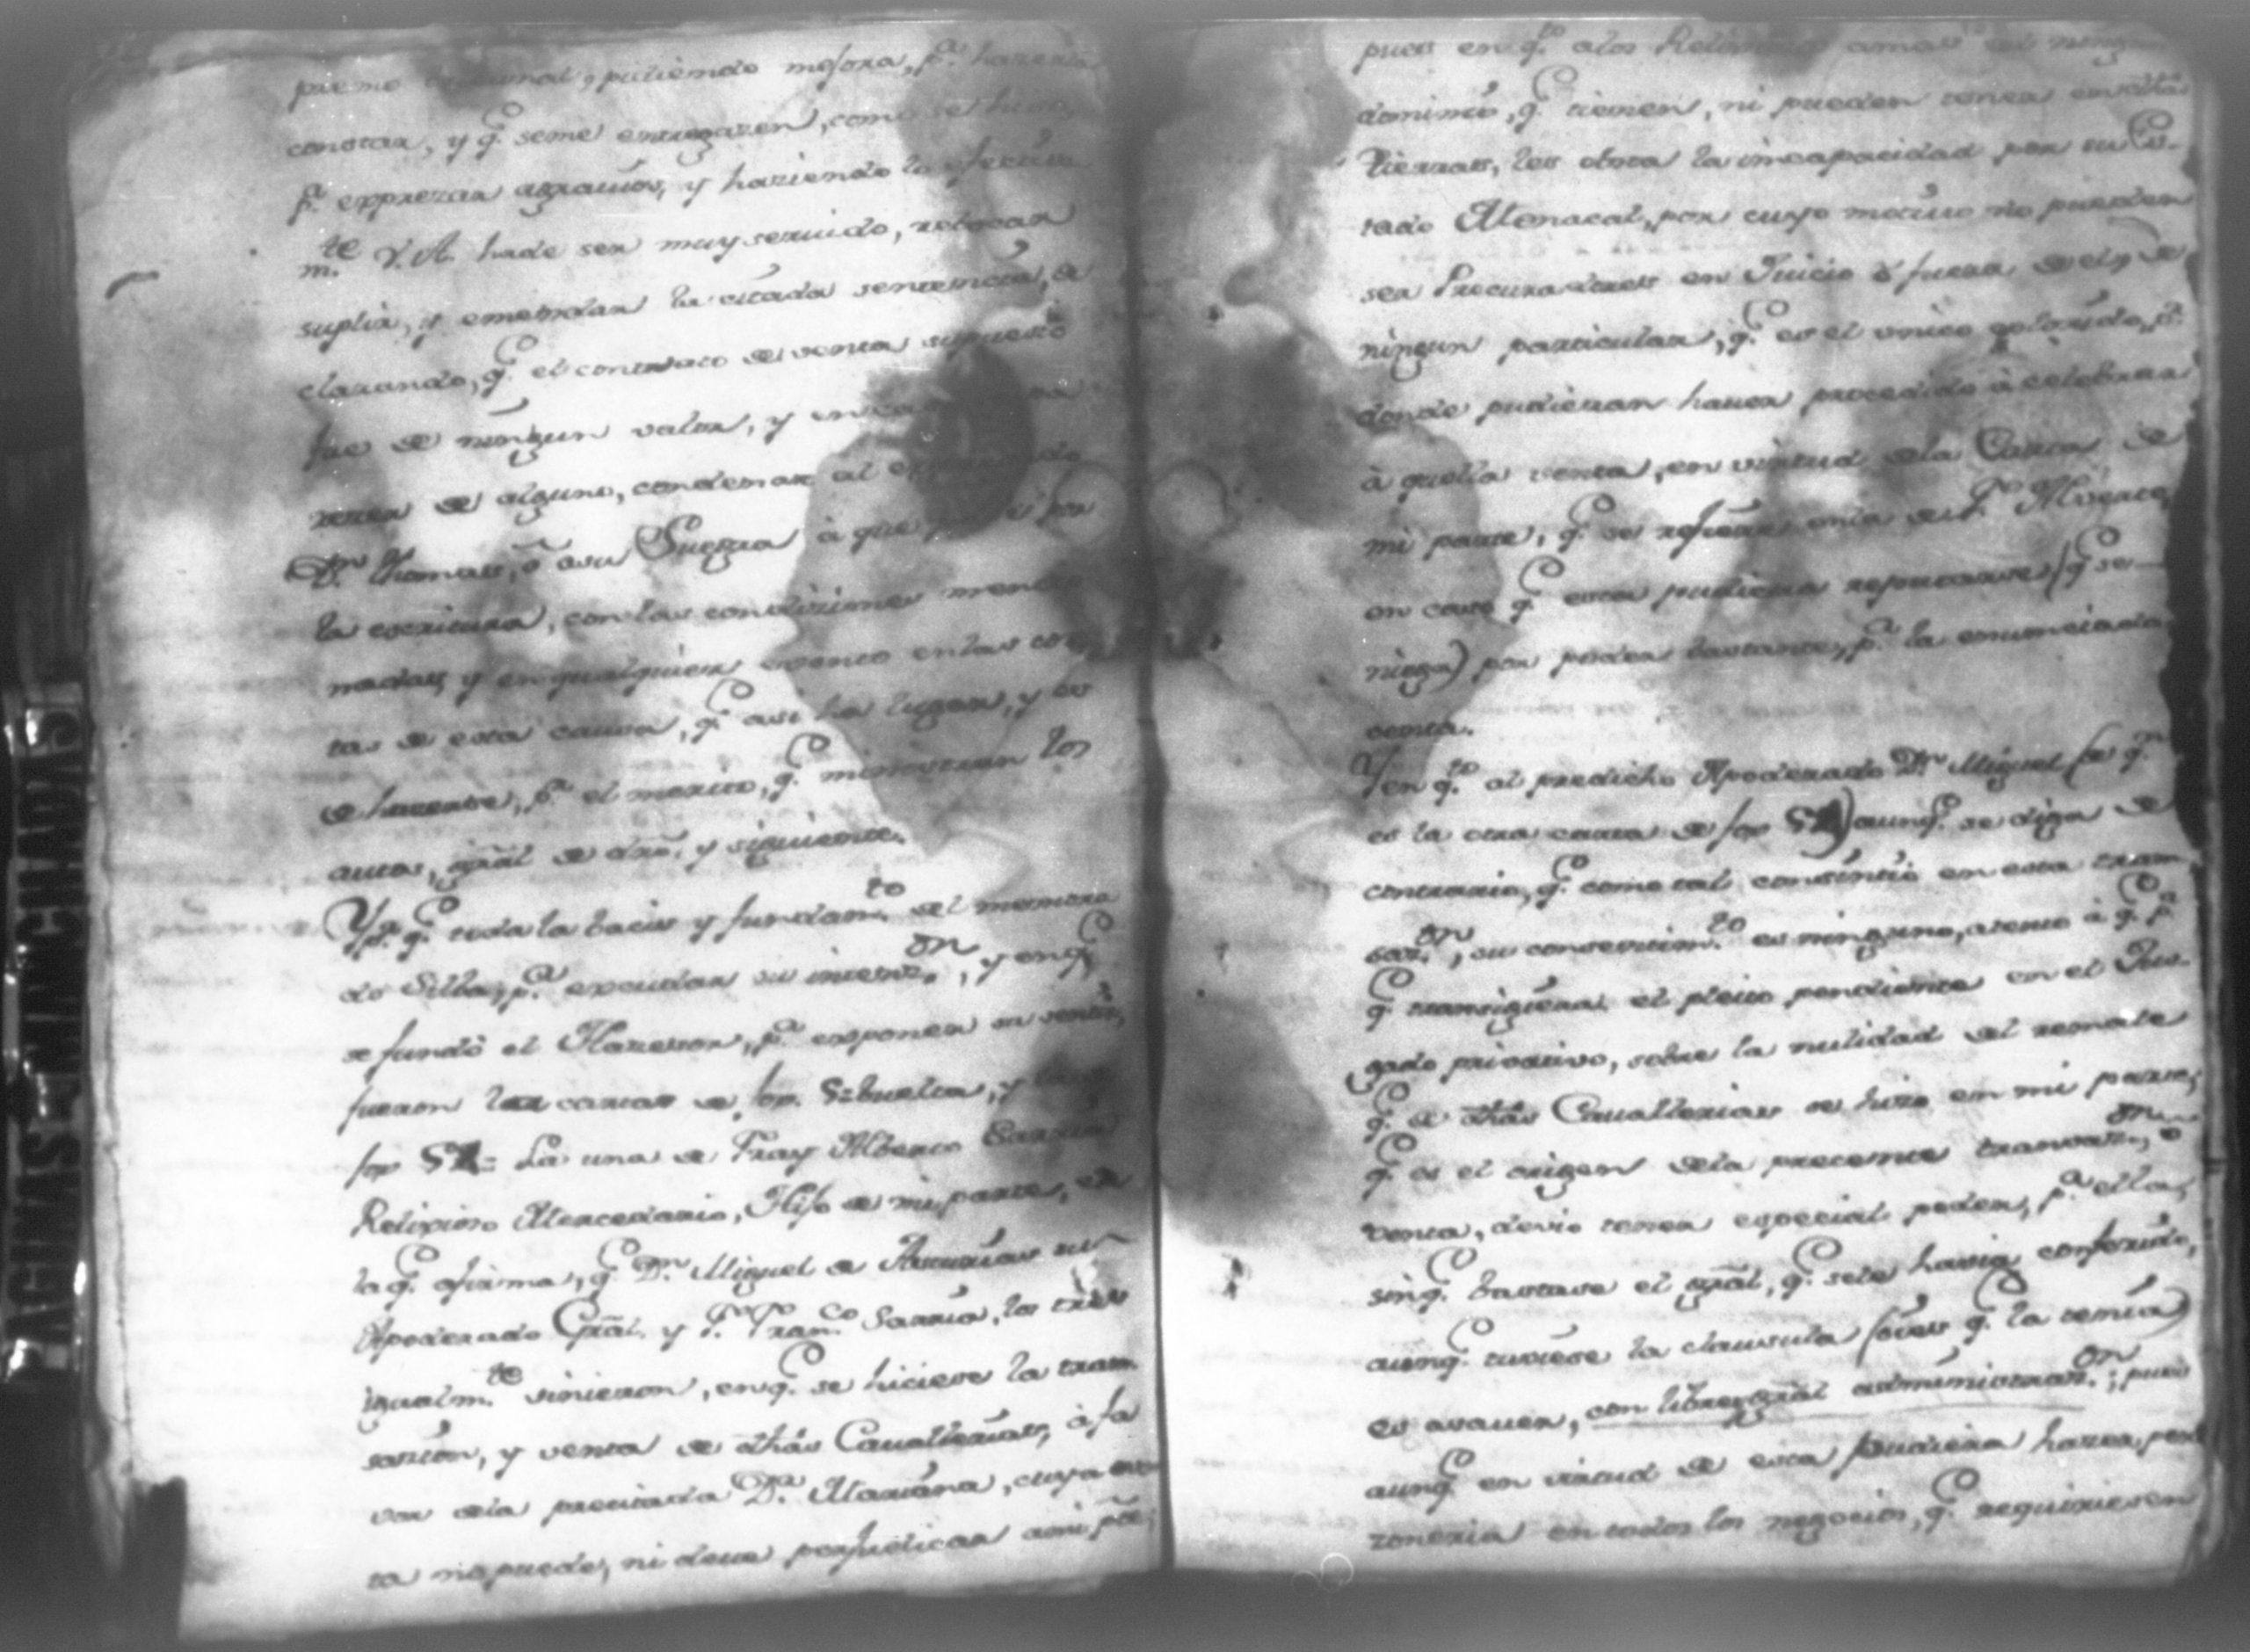 premo tribunal, pidiendo mejora, p.ᵃ hazerla
constar, y q.ᵉ seme entregaren, como se hizo,
p.ᵃ exprezar agravios, y haziendo lo
m.ᵗᵉ V.A. hade ser muy servido, rebocar
suplir, y emendar la citada sentencia, de
clarando, q.ᵉ el contrato de venta supuesto
fue de ningun valor, y en
serlo de alguno, condenar al
Dⁿ Thomas, ò asu Suegra à que por
la escritura, con las condiziones mencio
nadas, y en qualquiera evento en las cos
tas de esta causa, q.ᵉ asi ha lugar, y es
de hacerse, p.ʳ el merito, q.ᵉ ministran los
autos, gral de dro. y siguiente.
Y p.ʳ q.ᵉ toda la bacis y fundam.ᵗᵒ del memora
do Silba, p.ᵃ excudar su intenz.ᵒⁿ, y enq.ᵉ
se fundò el Asessor, p.ᵃ exponer su sentir,
fueron las cartas de fox. 52 buelta, y
fox 54= La una de Fray Alberto Sarria
Religioso Mercedario, Hijo de mi parte, en
la q.ᵉ afirma, q.ᵉ Dⁿ Miguel de Asturias su
Apoderado Gral. y F. Fran.ᶜᵒ Sarria, los tres
igualm.ᵗᵉ vinieron, enq.ᵉ se hiciese la tran
sacion, y venta de dhas Cavallerias, à fa
vor dela precitada D.ᵃ Mariana, cuya
ta no puede, ni deve perjudicar ami pte,
pues en q.ᵗᵒ alos Religiosos amas de ningun
dominio, q.ᵉ tienen, ni pueden tener en dhas
Tierras, les obsta la incapacidad por su Es-
tado Monacal, por cuyo motivo no pueden
ser Procuradores en Juicio ò fuera de el, de
ningun particular, q.ᵉ es el unico colorido, p.ʳ
donde pudieran haver procedido à celebrar
à quella venta, en virtud dela Carta de
mi parte, q.ᵉ se refiere enla de F. Alverto,
en caso q.ᵉ esta pudiera reputarse (q.ᵉ se
niega) por poder bastante, p.ᵃ la enunciada
venta.
Y en q.ᵗᵒ al predicho Apoderado Dⁿ Miguel (de q.ⁿ
es la otra carta de fox 54) aunq.ᵉ se diga de
contrario, q.ᵉ como tal consintiò en esta tran
saz.ᵒⁿ, su consentim.ᵗᵒ es ninguno, atento à q.ᵉ p.ᵃ
q.ᵉ transigiera el pleito pendiente en el Juz
gado privativo, sobre la nulidad del remate
q.ᵉ de dhas Cavallerias se hizo en mi parte,
q.ᵉ es el origen dela precente transaz.ᵒⁿ, ò
venta, devio tener especial poder, p.ᵃ ella,
sinq.ᵉ bastase el gral, q.ᵉ sele havia conferido,
aunq.ᵉ tuviese la clausula (q.ᵉ la tenia)
es asaver, con libre, y gral administraz.ᵒⁿ; pues
aunq.ᵉ en virtud de esta pudiera hazer per
zoneria en todos los negocios, q.ᵉ requiriesen
PAGINAS MANCHADAS